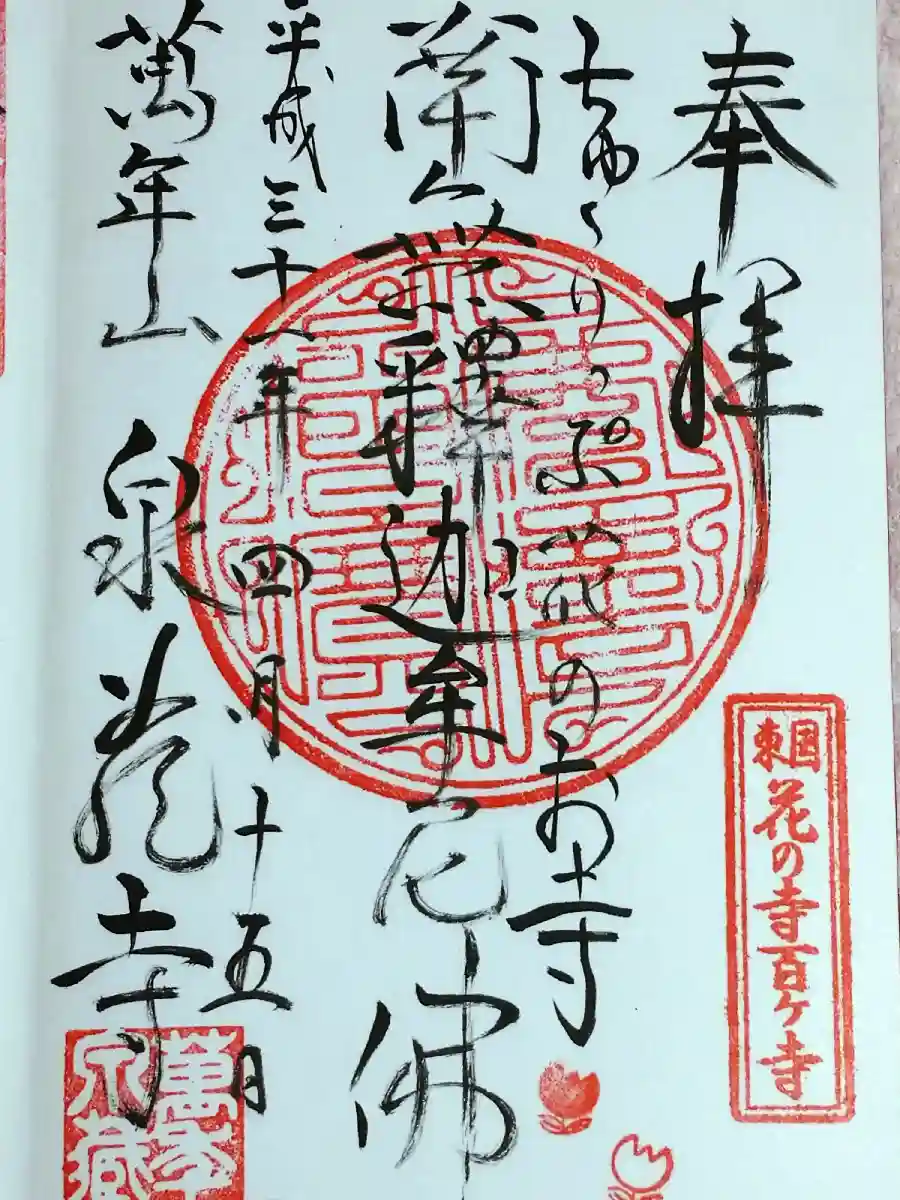 奉拝
ちゅうりっぷ花のお寺
南無釋迦牟尼佛
平成三十一年四月十五日
萬年山
東国花の寺百ヶ寺